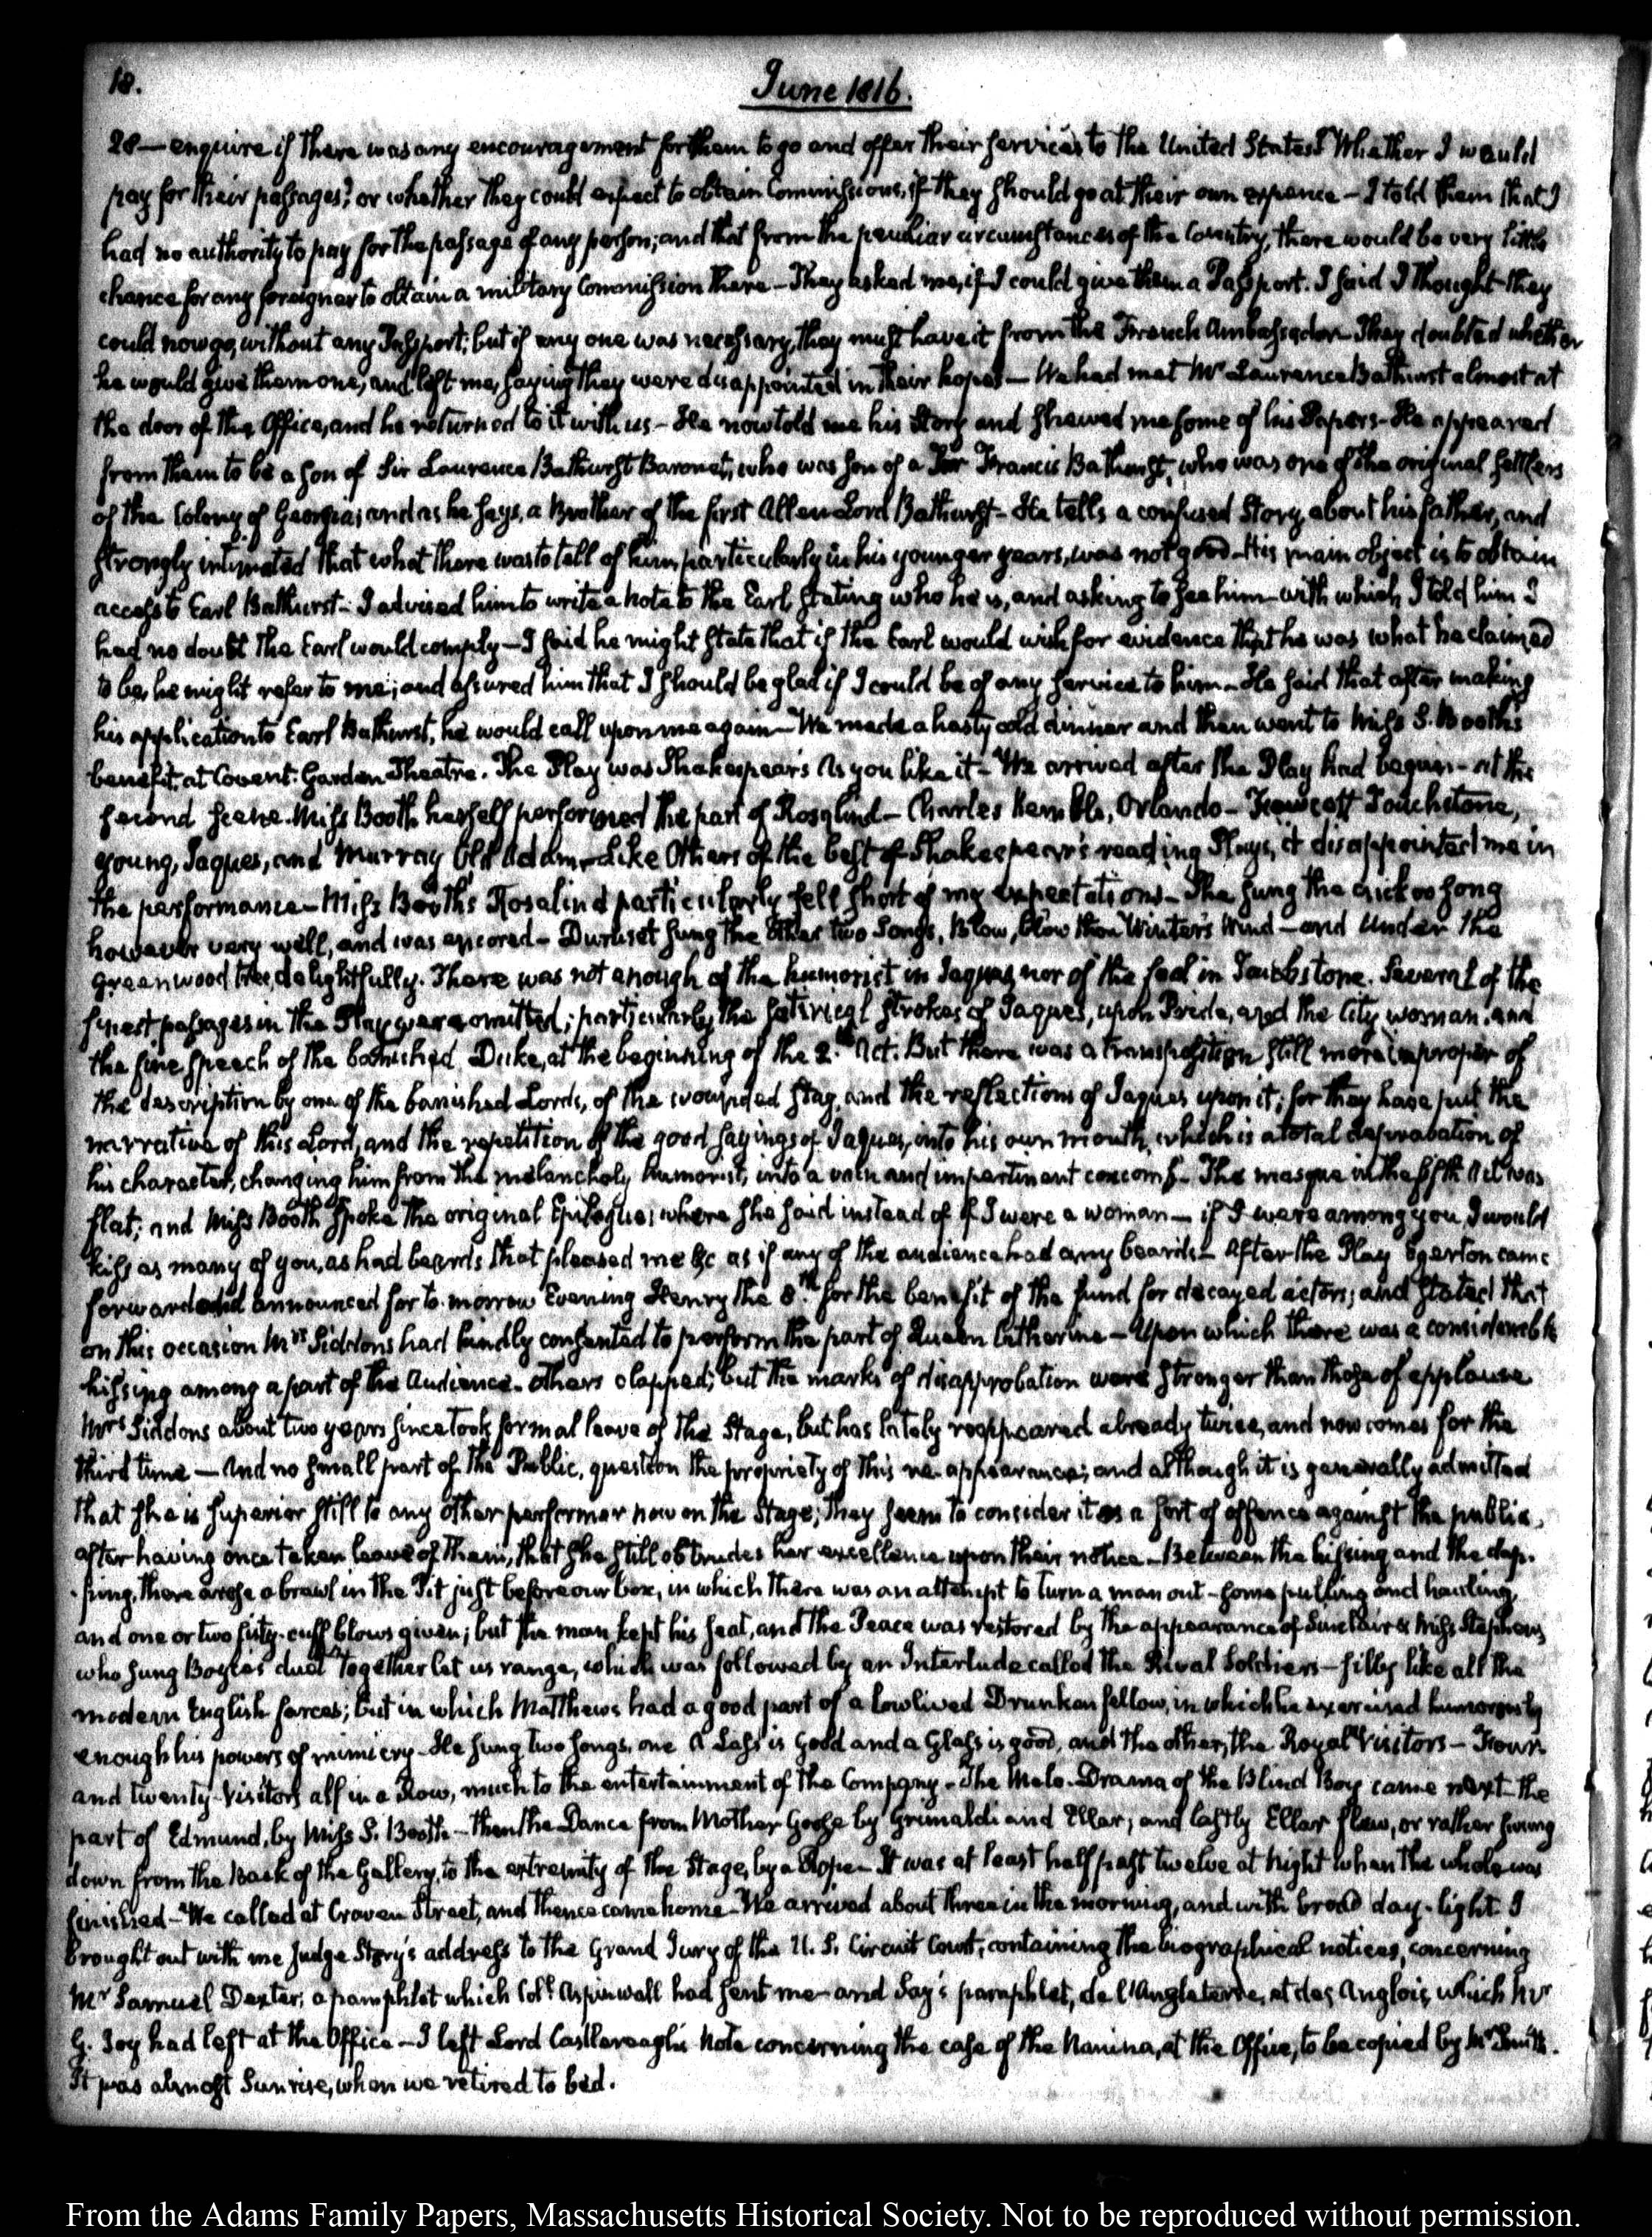 18.
June 1816.
28— enquire if there was any encouragement for them to go and offer their services to the United States? Whether I would
pay for their passages? or whether they could expect to obtain Commissions, if they should go at their own expence — I told them that I
had no authority to pay for the passage of any person; and that from the peculiar circumstances of the Country, there would be very little
chance for any foreigner to obtain a military Commission there — They asked me, if I could give them a Passport. I said I thought they
could now go, without any Passport; but if any one was necessary, they must have it from the French Ambassador — They doubted whether
he would give them one, and left me, saying they were disappointed in their hopes — We had met Mr Laurence Bathurst almost at
the door of the Office, and he returned to it with us — He now told me his Story and shewed me some of his Papers — He appeared
from them to be a son of Sir Laurence Bathurst Baronet, who was son of a Sir Francis Bathurst, who was one of the original settlers
of the Colony of Georgia; and as he says, a Brother of the first Allen Lord Bathurst — He tells a confused Story about his father, and
strongly intimated that what there was to tell of him, particularly in his younger years, was not good — His main object is to obtain
access to Earl Bathurst — I advised him to write a note to the Earl, stating who he is, and asking to see him — with which I told him I
had no doubt the Earl would comply — I said he might state that if the Earl would wish for evidence that he was what he claimed
to be, he might refer to me; and assured him that I should be glad if I could be of any service to him — He said that after making
his application to Earl Bathurst, he would call upon me again — We made a hasty cold dinner and then went to Miss S. Booth's
benefit, at Covent-Garden Theatre. The Play was Shakespear's As you like it — We arrived after the Play had begun — at the
second scene. Miss Booth herself performed the part of Rosalind — Charles Kemble, Orlando — Fawcett Touchstone,
Young, Jaques, and Murray Old Adam — Like Others of the best of Shakespear's reading Plays, it disappointed me in
the performance — Miss Booth's Rosalind particularly fell short of my expectations — She sung the cuckoo song
however very well, and was encored — Duruset sung the other two Songs, Blow, blow thou Winter's Wind — and Under the
greenwood tree, delightfully. There was not enough of the humorist in Jaques, nor of the fool in Touchstone. Several of the
finest passages in the Play were omitted; particularly the satirical strokes of Jaques, upon Pride, and the City woman, and
the fine speech of the banished Duke, at the beginning of the 2d Act. But there was a transposition still more improper of
the description by one of the banished Lords, of the wounded stag, and the reflections of Jaques upon it; for they have put the
narrative of this Lord, and the repetition of the good sayings of Jaques, into his own mouth, which is a total depravation of
his character, changing him from the melancholy humorist, into a vain and impertinent coxcomb — The masque in the fifth Act was
flat; and Miss Booth spoke the original Epilogue; where she said instead of if I were a woman — if I were among you, I would
kiss as many of you, as had beards that pleased me &c as if any of the audience had any beards — After the Play Egerton came
forward and announced for to-morrow Evening Henry the 8th for the benefit of the fund for decayed actors; and stated that
on this occasion Mrs Siddons had kindly consented to perform the part of Queen Catherine — Upon which there was a considerable
hissing among a part of the Audience. Others clapped; but the marks of disapprobation were stronger than those of applause
Mrs Siddons about two years since took formal leave of the Stage, but has lately reappeared already twice, and now comes for the
third time — And no small part of the Public, question the propriety of this re-appearance; and although it is generally admitted
that she is superior still to any other performer now on the Stage, they seem to consider it as a sort of offence against the public,
after having once taken leave of them, that she still obtrudes her excellence upon their notice — Between the hissing and the clap-
-ping, there arose a brawl in the Pit just before our box, in which there was an attempt to turn a man out — some pulling and hauling,
and one or two fisty-cuff blows given; but the man kept his seat, and the Peace was restored by the appearance of Sinclair & Miss Stephens
who sung Boyce's duet Together let us range, which was followed by an Interlude called the Rival Soldiers — silly like all the
modern English farces; but in which Matthews had a good part of a lowlived Drunken fellow, in which he exercised humorously
enough his powers of mimicry — He sung two songs, one A Lass is good and a Glass is good, and the other, the Royal Visitors — Four
and twenty Visitors all in a Row, much to the entertainment of the Company — The Melo-Drama of the Blind Boy came next — the
part of Edmund, by Miss S. Booth — then the Dance from Mother Goose by Grimaldi and Ellar; and lastly Ellar flew, or rather swung
down from the back of the Gallery, to the extremity of the Stage, by a Rope — It was at least half past twelve at Night when the whole was
finished — We called at Craven Street, and thence came home — We arrived about three in the morning, and with broad day-light. I
brought out with me Judge Story's address to the Grand Jury of the U.S. Circuit Court, containing the biographical notices, concerning
Mr Samuel Dexter; a pamphlet which Coll Aspinwall had sent me — and Say's pamphlet, de l'Angleterre, et des Anglois, which Mr
G. Joy had left at the Office — I left Lord Castlereagh's Note concerning the case of the Nanina, at the Office, to be copied by Mr Smith.
It was almost Sunrise, when we retired to bed.
From the Adams Family Papers, Massachusetts Historical Society. Not to be reproduced without permission.